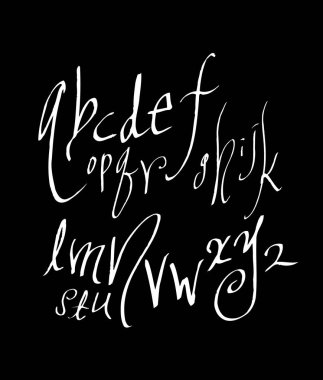 abcdef
opqr ghijk
lmn vw xyz
stu